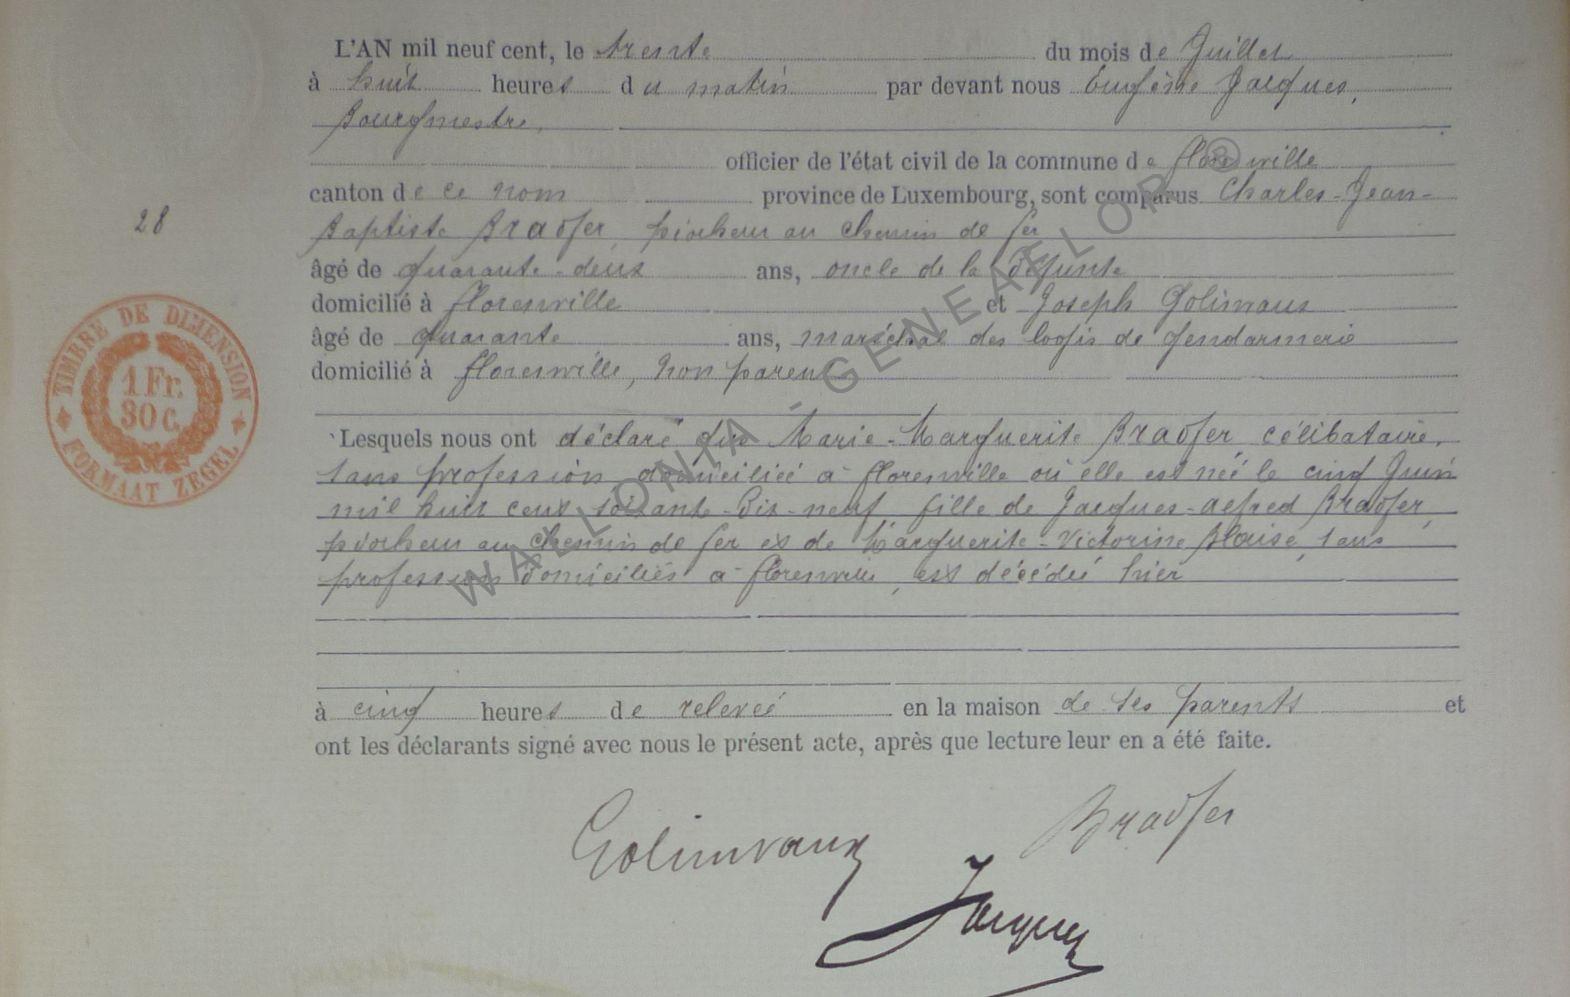 L'AN mil neuf cent, le trente du mois de Juillet
à huit heures du matin par devant nous Eugène Jacques,
Bourgmestre,
officier de l'état civil de la commune de florenville
canton de ce nom province de Luxembourg, sont comparus Charles-Jean-
28
Baptiste Bradfer, piocheur au chemin de fer
âgé de quarante-deux ans, oncle de la défunte
domicilié à florenville et Joseph Golinvaux
âgé de quarante ans, maréchal des logis de gendarmerie
domicilié à florenville, non parent
TIMBRE DE DIMENSION
1 Fr.
30 C.
FORMAAT ZEGEL
Lesquels nous ont déclaré que Marie-Marguerite Bradfer célibataire,
sans profession, domiciliée à florenville où elle est née le cinq Juin
mil huit cent soixante-dix-neuf, fille de Jacques-alfred Bradfer,
piocheur au chemin de fer et de Marguerite-Victorine Blaise, sans
profession domiciliés à florenville, est décédée hier
à cinq heures de relevée en la maison de ses parents et
ont les déclarants signé avec nous le présent acte, après que lecture leur en a été faite.
Golinvaux Bradfer
Jacques
WALLONIA - GENEAFLOR ®